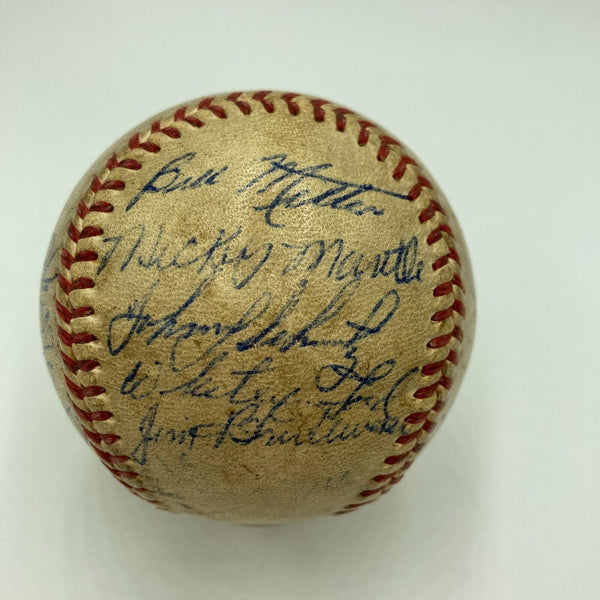 Bill Metter
Mickey Mantle
Johnny Schmitz
Whitey Ford
Jim Brideweser